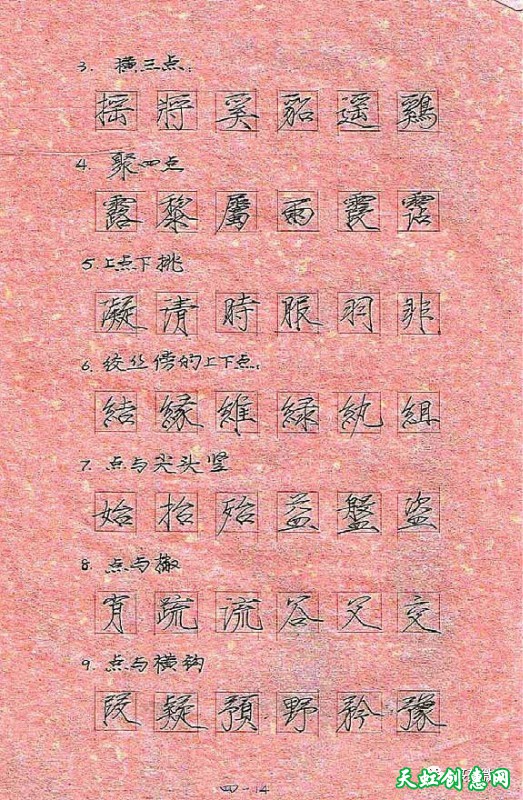 3. 横三点:
摇 将 奚 貂 遥 鷄
4. 聚四点
露 黎 屬 雨 霞 霑
5. 上点下挑
凝 请 時 服 羽 非
6. 绞丝傍的上下点:
結 緣 維 綠 紈 組
7. 点与尖头竖
始 抬 殆 益 盤 盗
8. 点与撇
育 疏 流 谷 父 交
9. 点与横钩
段 疑 預 野 矜 豫
四-14
天虹创意网